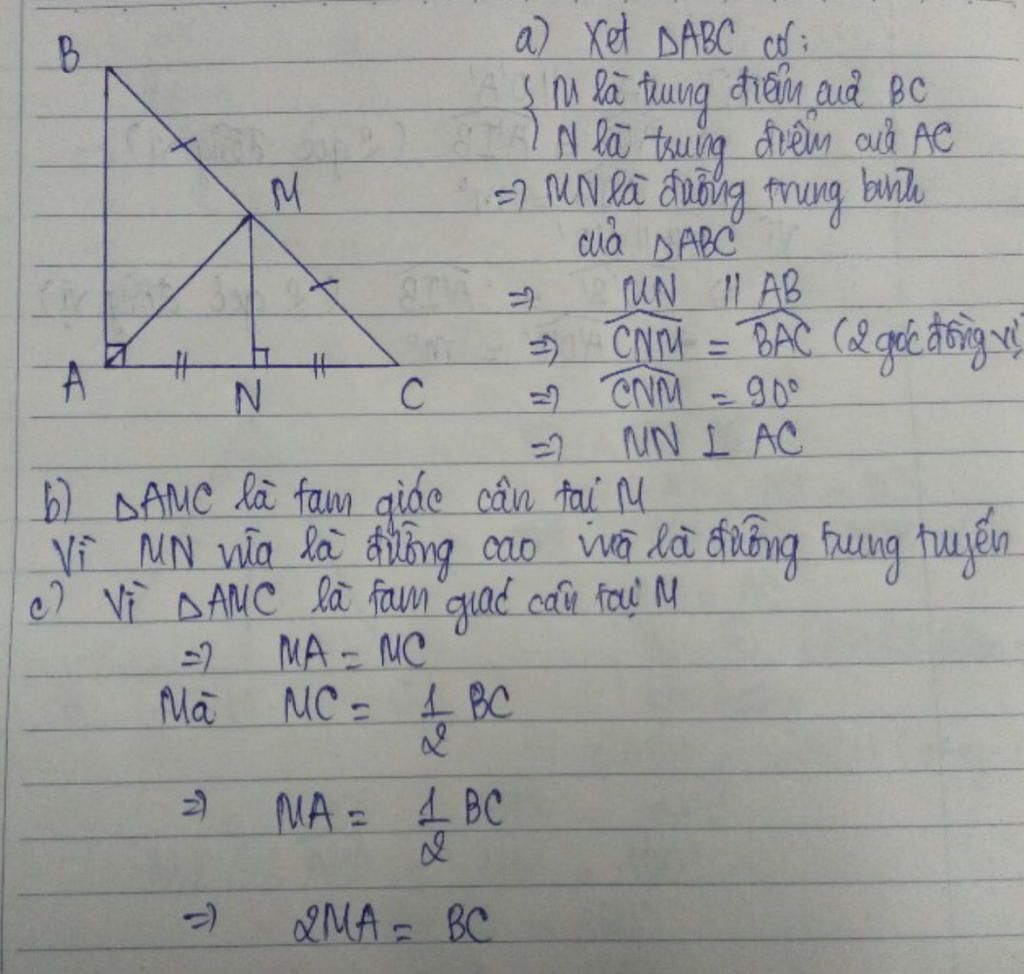 B
M
A
N
C
a) Xét △ABC có:
{ M là trung điểm của BC
N là trung điểm của AC
=> MN là đường trung bình
của △ABC
=> MN // AB
=> \widehat{CNM} = \widehat{BAC} (2 góc đồng vị
=> \widehat{CNM} = 90°
=> MN ⊥ AC
b) △AMC là tam giác cân tại M
Vì MN vừa là đường cao vừa là đường trung tuyến
c) Vì △AMC là tam giác cân tại M
=> MA = MC
Mà MC = 1/2 BC
=> MA = 1/2 BC
=> 2MA = BC